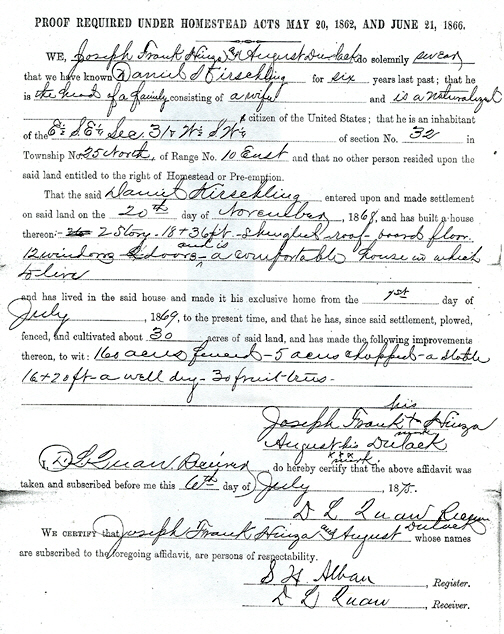 PROOF REQUIRED UNDER HOMESTEAD ACTS MAY 20, 1862, AND JUNE 21, 1866.
WE, Joseph Frank Hinza & August Dulack do solemnly swear
that we have known Daniel Kirschling for six years last past; that he
is the head of a family consisting of a wife and is a Naturalized
citizen of the United States; that he is an inhabitant
of the E½ S E¼ Sec 31 & W½ S W¼ of section No. 32 in
Township No. 25 North, of Range No. 10 East and that no other person resided upon the
said land entitled to the right of Homestead or Pre-emption.
That the said Daniel Kirschling entered upon and made settlement
on said land on the 20th day of November, 1868, and has built a house
thereon 2 Story - 18 + 36 ft - Shingled roof board floor
12 windows doors - and is a comfortable house in which
to live
and has lived in the said house and made it his exclusive home from the 1st day of
July, 1869, to the present time, and that he has, since said settlement, plowed,
fenced, and cultivated about 30 acres of said land, and has made the following improvements
thereon, to wit: 160 acres fenced - 5 acres chopped - a stable
16 + 20 ft - a well dug - 30 fruit trees.
his
Joseph Frank + Hinza
mark
August his Dulack
x x x
mark
I, D L Quaw Receiver do hereby certify that the above affidavit was
taken and subscribed before me this 6th day of July 1875.
D L Quaw Receiver
WE CERTIFY that Joseph Frank Hinza and August Dulack whose names
are subscribed to the foregoing affidavit, are persons of respectability.
S H Alban, Register.
D L Quaw, Receiver.